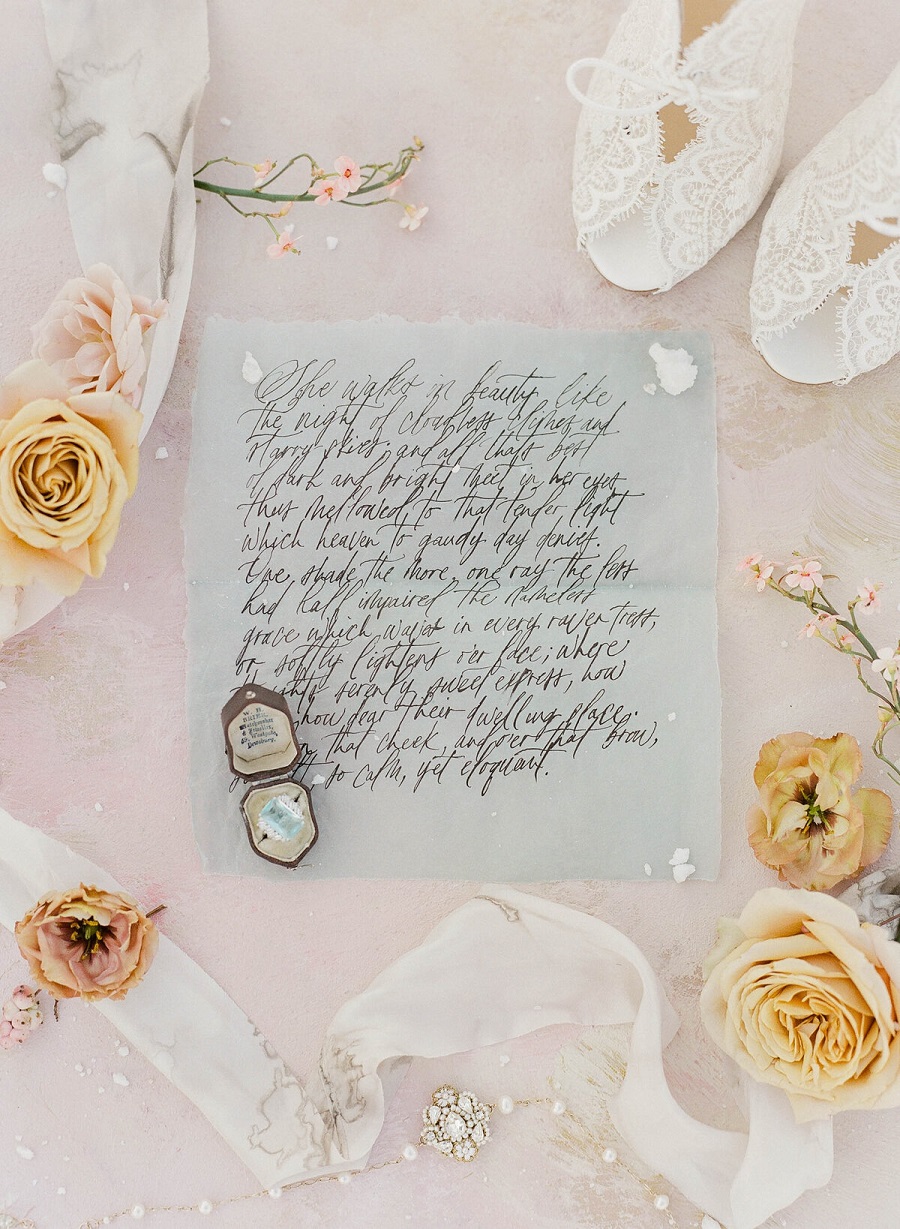 She walks in beauty, like
the night of cloudless climes and
starry skies; and all that's best
of dark and bright meet in her eyes
thus mellowed to that tender light
which heaven to gaudy day denies.
One shade the more, one ray the less
had half impaired the nameless
grace which waves in every raven tress,
or softly lightens o'er face; where
serenely sweet express, how
how dear their dwelling place.
that cheek, and o'er that brow,
so calm, yet eloquent.
W. H.
Watchmaker
& Jeweller,
Westgate,
Dewsbury.